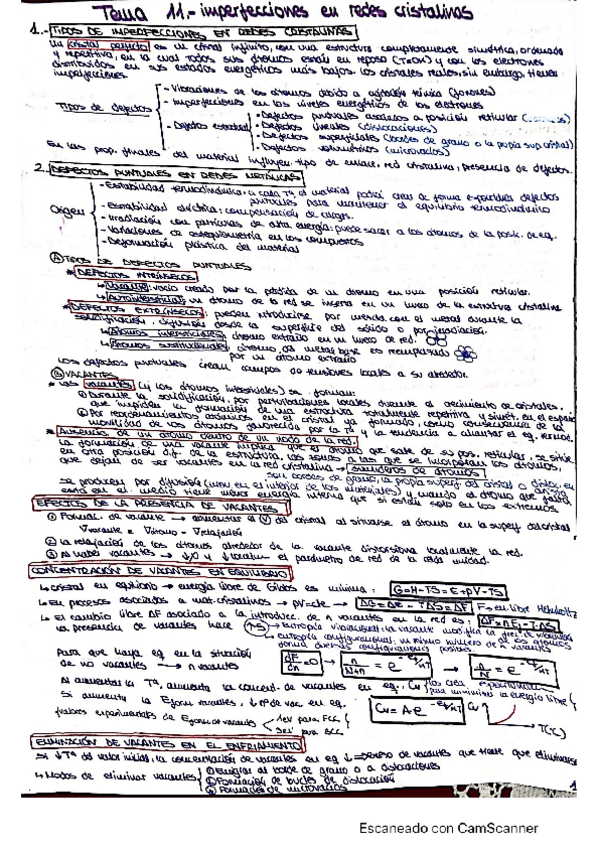 Tema 11.- imperfecciones en redes cristalinas
1.- TIPOS DE IMPERFECCIONES EN REDES CRISTALINAS
Un cristal perfecto es un cristal infinito, con una estructura completamente simétrica, ordenada
y repetitiva, en la cual todos sus átomos están en reposo (T=0K) y con los electrones
distribuidos en sus estados energéticos más bajos. Los cristales reales, sin embargo, tienen
imperfecciones
- Vibraciones de los átomos debido a agitación térmica (fonones)
- Imperfecciones en los niveles energéticos de los electrones
Tipos de defectos
- Defectos estructurales
- Defectos puntuales asociados a posición reticular
- Defectos lineales (dislocaciones)
- Defectos superficiales (bordes de grano o la propia sup cristal)
- Defectos volumétricos (microvacíos)
En las prop. finales del material influyen: tipo de enlace, red cristalina, presencia de defectos.
2.- DEFECTOS PUNTUALES EN REDES METÁLICAS
- Estabilidad termodinámica: a cada Tª el material podrá crear de forma espontánea defectos
puntuales para mantener el equilibrio termodinámico
Origen
- Estabilidad eléctrica: compensación de cargas.
- Irradiación con partículas de alta energía: puede sacar a los átomos de la posic. de eq.
- Variaciones de estequiometría en los compuestos
- Deformación plástica del material
A TIPOS DE DEFECTOS PUNTUALES
* DEFECTOS INTRÍNSECOS
↳ Vacante: vacío creado por la pérdida de un átomo en una posición reticular.
↳ Autointersticial: un átomo de la red se inserta en un hueco de la estructura cristalina
* DEFECTOS EXTRÍNSECOS: pueden introducirse por mezcla con el metal durante la
solidificación, difusión desde la superficie del sólido o por irradiación.
↳ Átomos intersticiales: átomo extraño en un hueco de red.
↳ Átomos sustitucionales: átomo de metal base es reemplazado
por un átomo extraño
Los defectos puntuales crean campos de tensiones locales a su alrededor.
B VACANTES
* Las vacantes (y los átomos intersticiales) se forman:
① Durante la solidificación, por perturbaciones locales durante el crecimiento de cristales,
que impiden la formación de una estructura totalmente repetitiva y simét. en el espacio
② Por reordenamientos atómicos en el cristal ya formado, como consecuencia de la
movilidad de los átomos favorecida por la Tª y la tendencia a alcanzar el eq. termod.
* Ausencia de un átomo dentro de un nodo de la red.
La formación de una vacante implica que el átomo que sale de su pos. reticular, se sitúe
en otra posición dif. de la estructura, las zonas a las que se incorporan los átomos,
que dejan de ser vacantes en la red cristalina → sumideros de átomos
son bordes de grano, la propia superf del cristal o disloc. en
Se producen por difusión
EFECTOS DE LA PRESENCIA DE VACANTES
① Formac. de vacante → aumentar el V del cristal al situarse el átomo en la superf del cristal
Vvacante = Vátomo - Vrelajación
② La relajación de los átomos alrededor de la vacante distorsiona localmente la red.
③ Al haber vacantes → el parámetro de red de la celda unidad.
CONCENTRACIÓN DE VACANTES EN EQUILIBRIO
↳ Cristal en equilibrio → energía libre de Gibbs es mínima: G=H-TS=E+pV-TS
↳ En procesos asociados a mat. cristalinos → pV=cte → ΔG=ΔE-TΔS=ΔF F=en. libre Helmholtz
↳ El cambio libre ΔF asociado a la introducc. de n vacantes en la red es: ΔF=nEf-TΔS
la presencia de vacantes hace ↑S
Para que haya eq. en la situación
de no vacantes → n vacantes
Al aumentar la Tª, aumenta la concent. de vacantes en eq., Cv
Si aumenta la Eform vacantes, ↓ nº de vac en eq.
Valores experimentales de Eform de vacantes
1eV para FCC
para BCC
T(ºC)
ELIMINACIÓN DE VACANTES EN EL ENFRIAMIENTO
Si ↓Tª del valor inicial, la concentración de vacantes en eq. ↓ → exceso de vacantes que tiene que eliminarse
↳ Modos de eliminar vacantes
① Emigrar al borde de grano o a dislocaciones
② Formación de bucles de dislocación
③ Formación de microvacíos
1
Escaneado con CamScanner